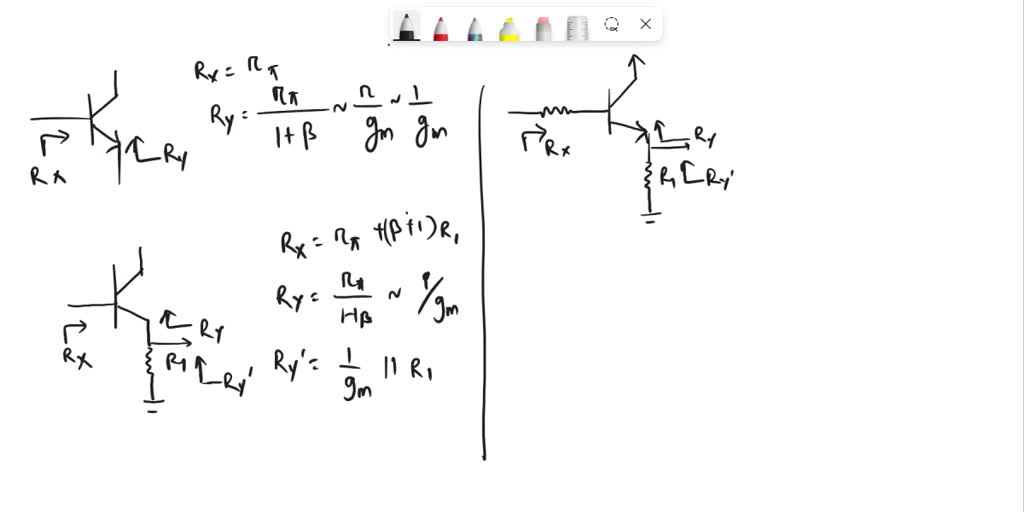 Rx = rπ
Ry = rπ / 1+β ~ r / gm ~ 1 / gm
Rx
Ry
Rx = rπ + (β+1) R1
Ry = rπ / 1+β ~ 1/gm
Ry' = 1 / gm || R1
Rx
Ry
R1
Ry'
Rx
Ry
R1
Ry'